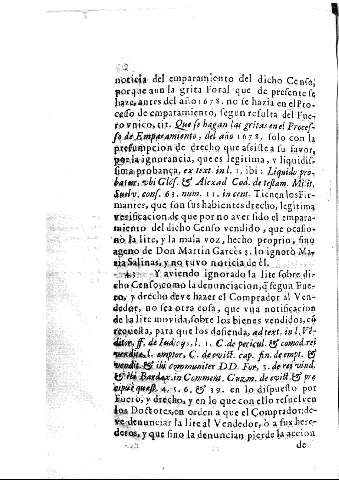 noticia del emparamento del dicho Censo;
porque aun la grita Foral que de presente se
haze, antes del año 1678. no se hazia en el Pro-
ceso de emparamento, segun resulta del Fue-
ro vnico, tit. Que se hagan las gritas en el Proces-
so de Emparamento, del año 1678. solo con la
presumpcion de drecho que assiste a su favor,
por la ignorancia, que es legitima, y liquidis-
sima probança, ex text. in l. 1. ibi: Liquido pro-
batur, vbi Glos. & Alexad Cod. de testam. Milit.
63. num. 11. in cent. Tienen los Fir-
mantes, que son sus habientes drecho, legitima
verificacion de que por no aver sido el empara-
mento del dicho Censo vendido, que ocasio-
nò la lite, y la mala voz, hecho proprio, sino
ageno de Don Martin Garcès; lo ignorò Ma-
ria Salinas, y no tuvo noticia de èl.
43 Y aviendo ignorado la lite sobre di-
cho Censo, como la denunciacion, q̃ segun Fue-
ro, y drecho deve hazer el Comprador al Ven-
dedor, no sea otra cosa, que vna notificacion
de la lite movida, sobre los bienes vendidos, cõ
requesta, para que los defienda, ad text. in l. Vẽ-
ditor, ff. de Iudicijs, l. 1. C. de pericul. & comod. rei
vendit. l. emptor, C. de evict. cap. fin. de empt. &
vendit. & ibi communiter DD. Fur. 3. de rei vind.
& ibi Bardax. in Comment. Guzm. de evict. &
quæst. 4. 5. 6. & 39. en lo dispuesto por
Fuero, y drecho, y en lo que con ello resuelven
los Doctores, en orden a que el Comprador de-
ve denunciar la lite al Vendedor, ò a sus here-
deros, y que sino la denuncian pierde la accion
de